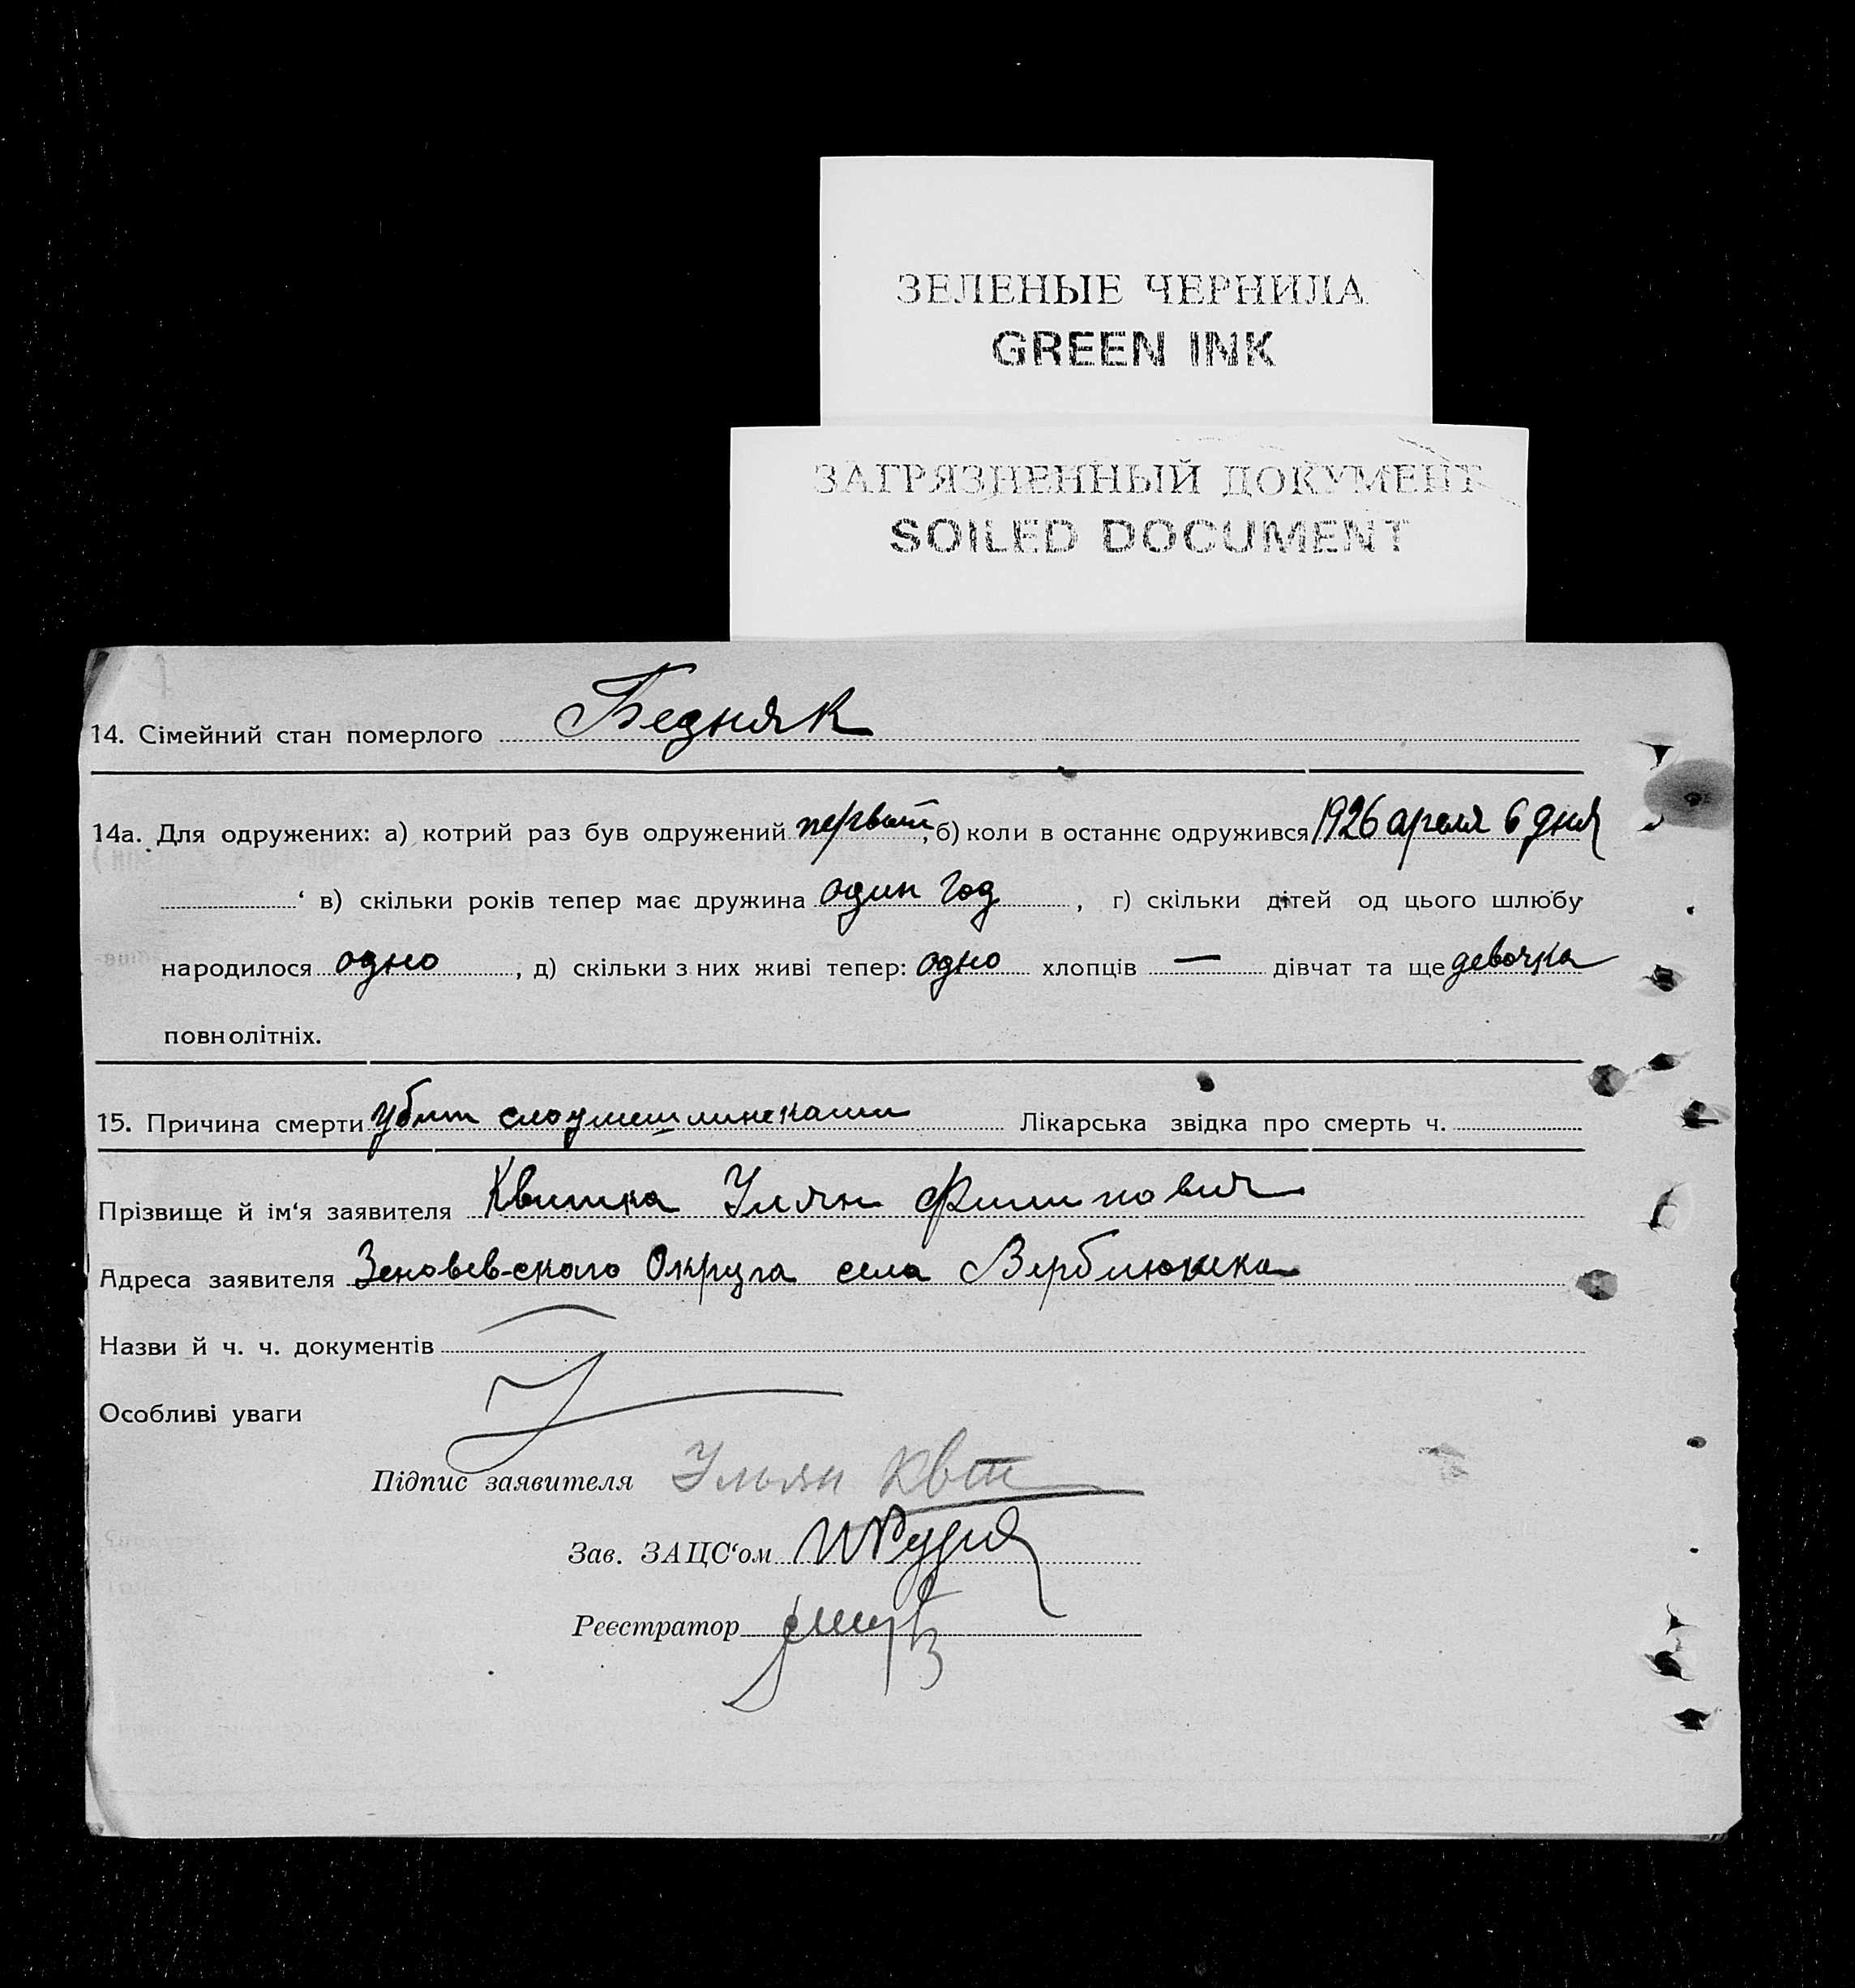 ЗЕЛЕНЫЕ ЧЕРНИЛА
GREEN INK
ЗАГРЯЗНЕННЫЙ ДОКУМЕНТ
SOILED DOCUMENT
14. Сімейний стан померлого Бедняк
14а. Для одружених: а) котрий раз був одружений первый, б) коли в останнє одружився 1926 апреля 6 дня
‘ в) скільки років тепер має дружина один год, г) скільки дітей од цього шлюбу
народилося одно, д) скільки з них живі тепер: одно хлопців — дівчат та ще девочка
повнолітніх.
15. Причина смерти убит Лікарська звідка про смерть ч.
Прізвище й ім‘я заявителя Квитка Улян Филипович
Адреса заявителя Зеновев-ского Округа села Верблюжка
Назви й ч. ч. документів
Особливі уваги
Підпис заявителя Ульян Квт
Зав. ЗАЦС‘ом
Реєстратор